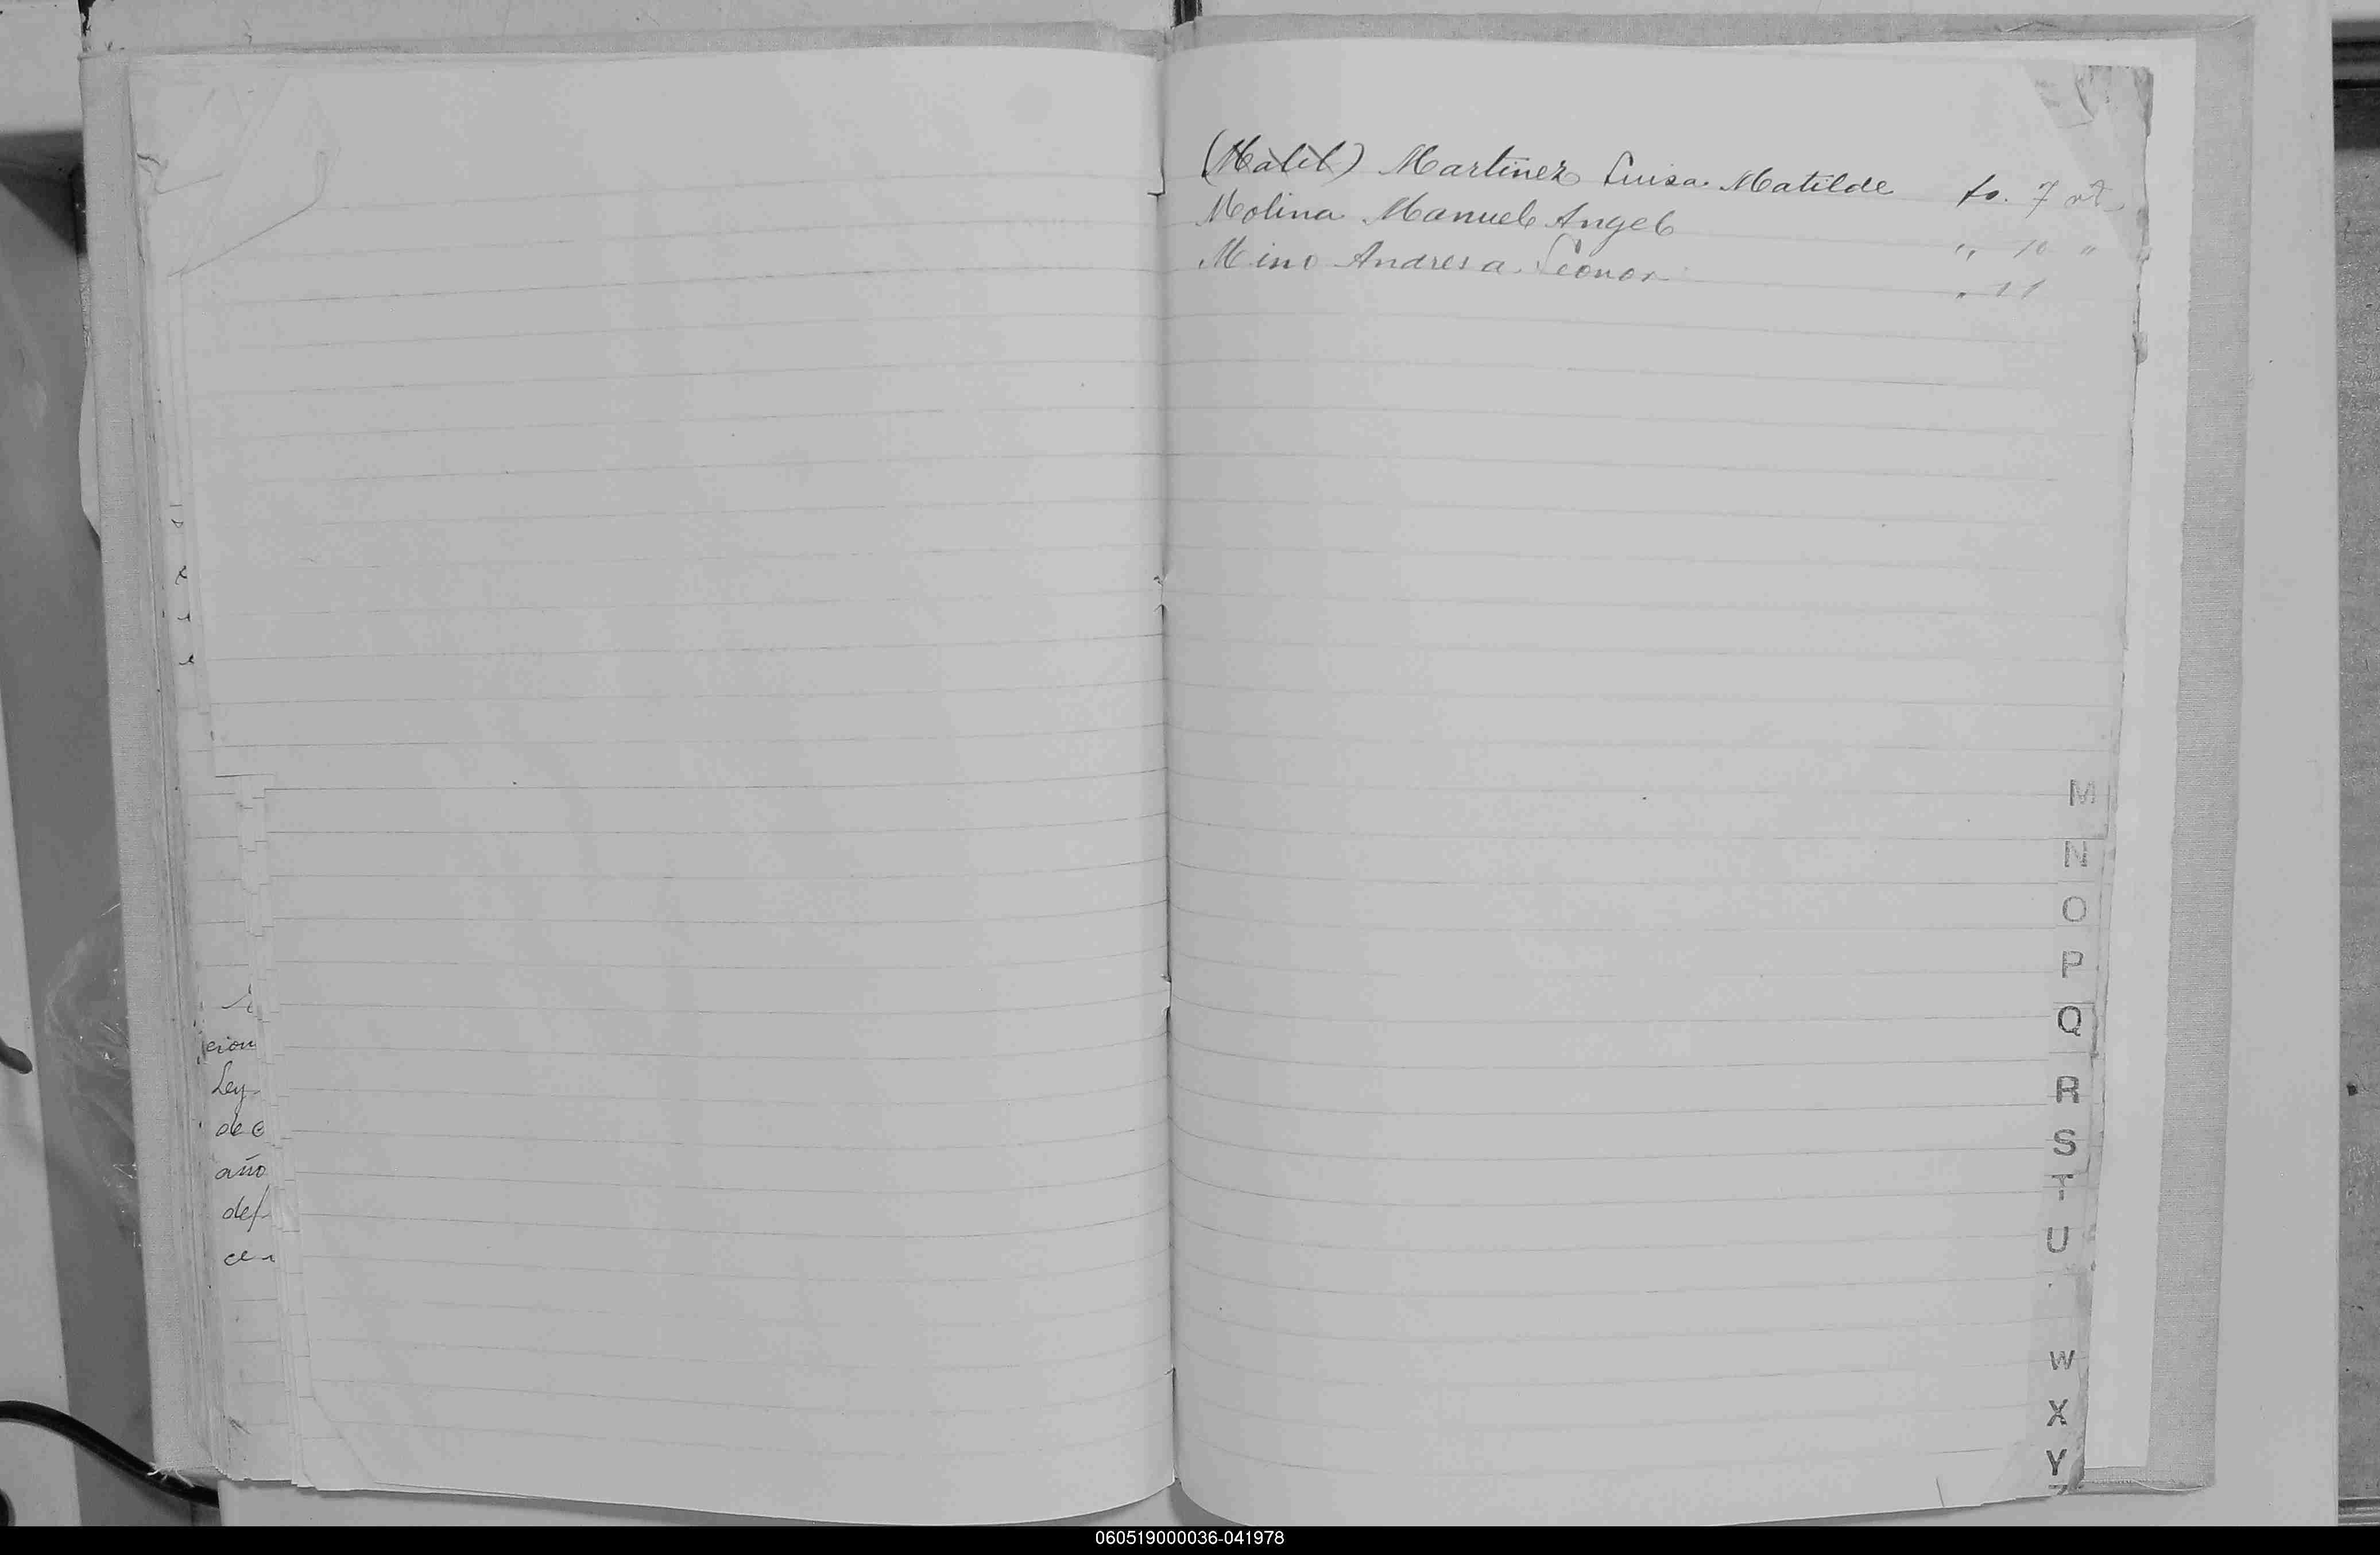 cion
Ley
de C
año
del
ce
(Matil) Martinez Luisa Matilde fo. 7 vt
Molina Manuel Angel " 10 "
Mino Andresa Leonor " 11
M
N
O
P
Q
R
S
T
U
W
X
Y
060519000036-041978